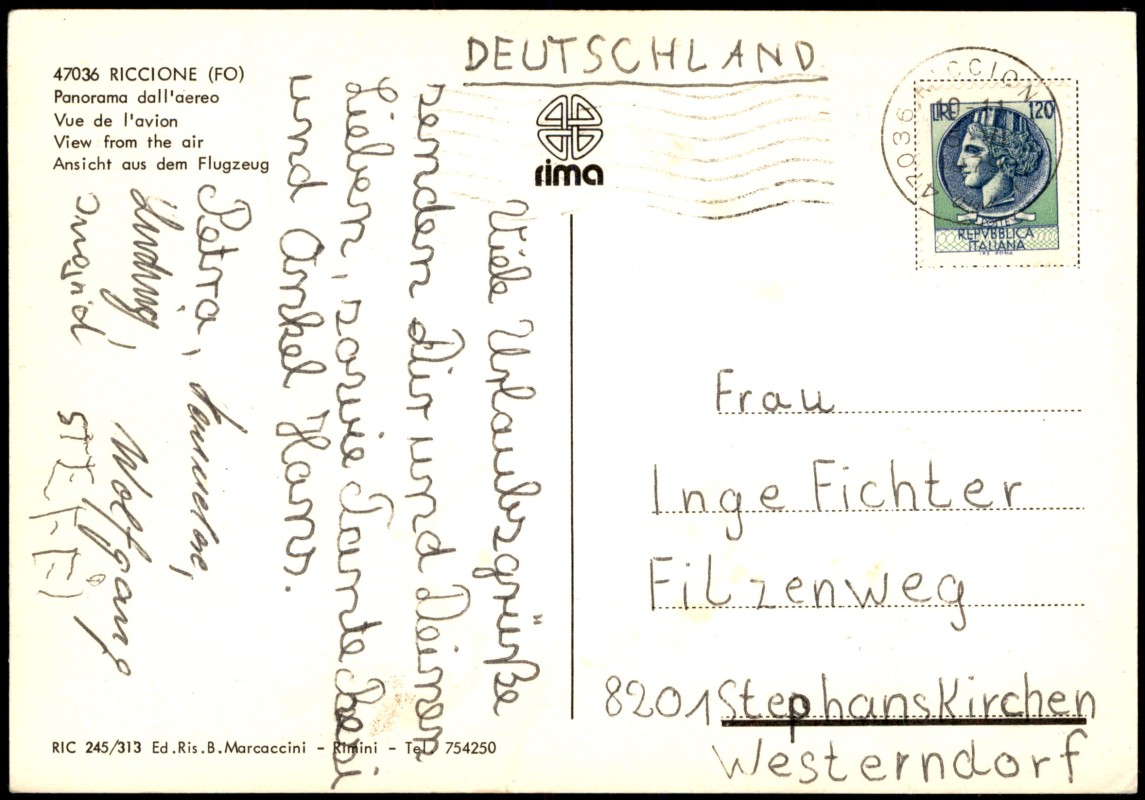 47036 RICCIONE (FO)
Panorama dall'aereo
Vue de l'avion
View from the air
Ansicht aus dem Flugzeug
DEUTSCHLAND
rima
47036 RICCION
10 11
LIRE 120
POSTE
REPVBBLICA
ITALIANA
IPS ROMA
Viele Urlaubsgrüße
senden Dir und Deinen
Lieben, sowie Tante Resi
und Onkel Hans.
Petra, Hannelore,
Ludwig, Wolfgang
Imgrid STEFFI
Frau
Inge Fichter
Filzenweg
8201 Stephanskirchen
Westerndorf
RIC 245/313 Ed.Ris.B.Marcaccini - Rimini - Tel. 754250